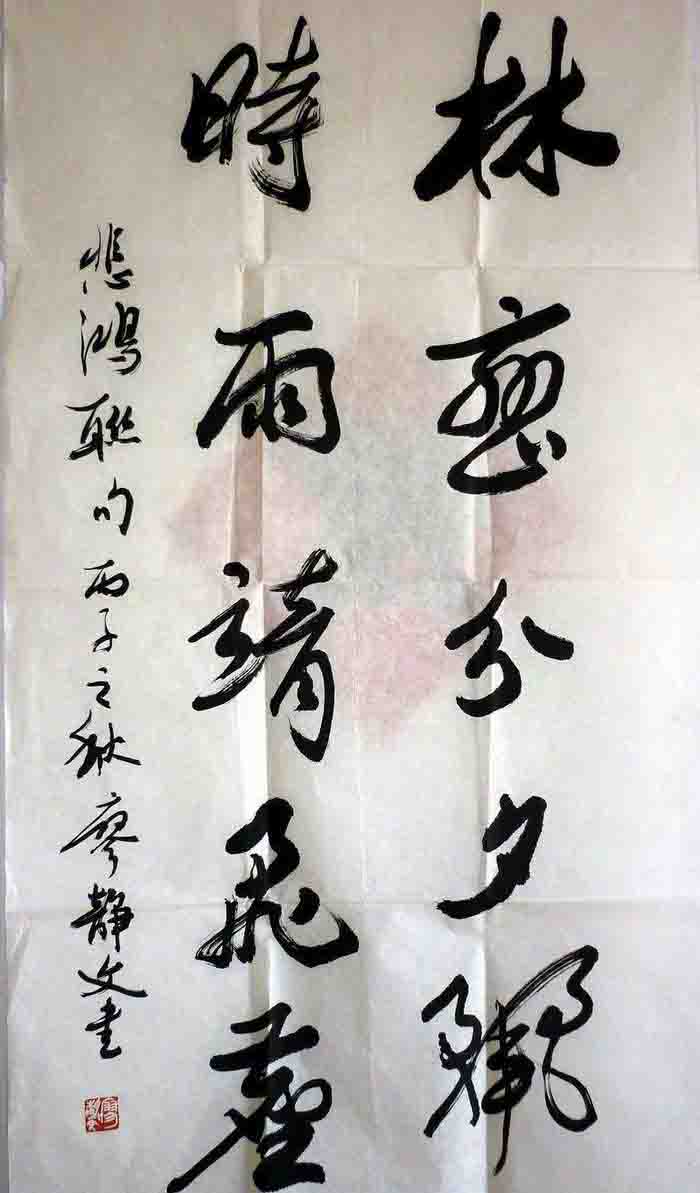 林巒分夕
時雨靖飛塵
悲鴻聯句丙子之秋廖靜文書